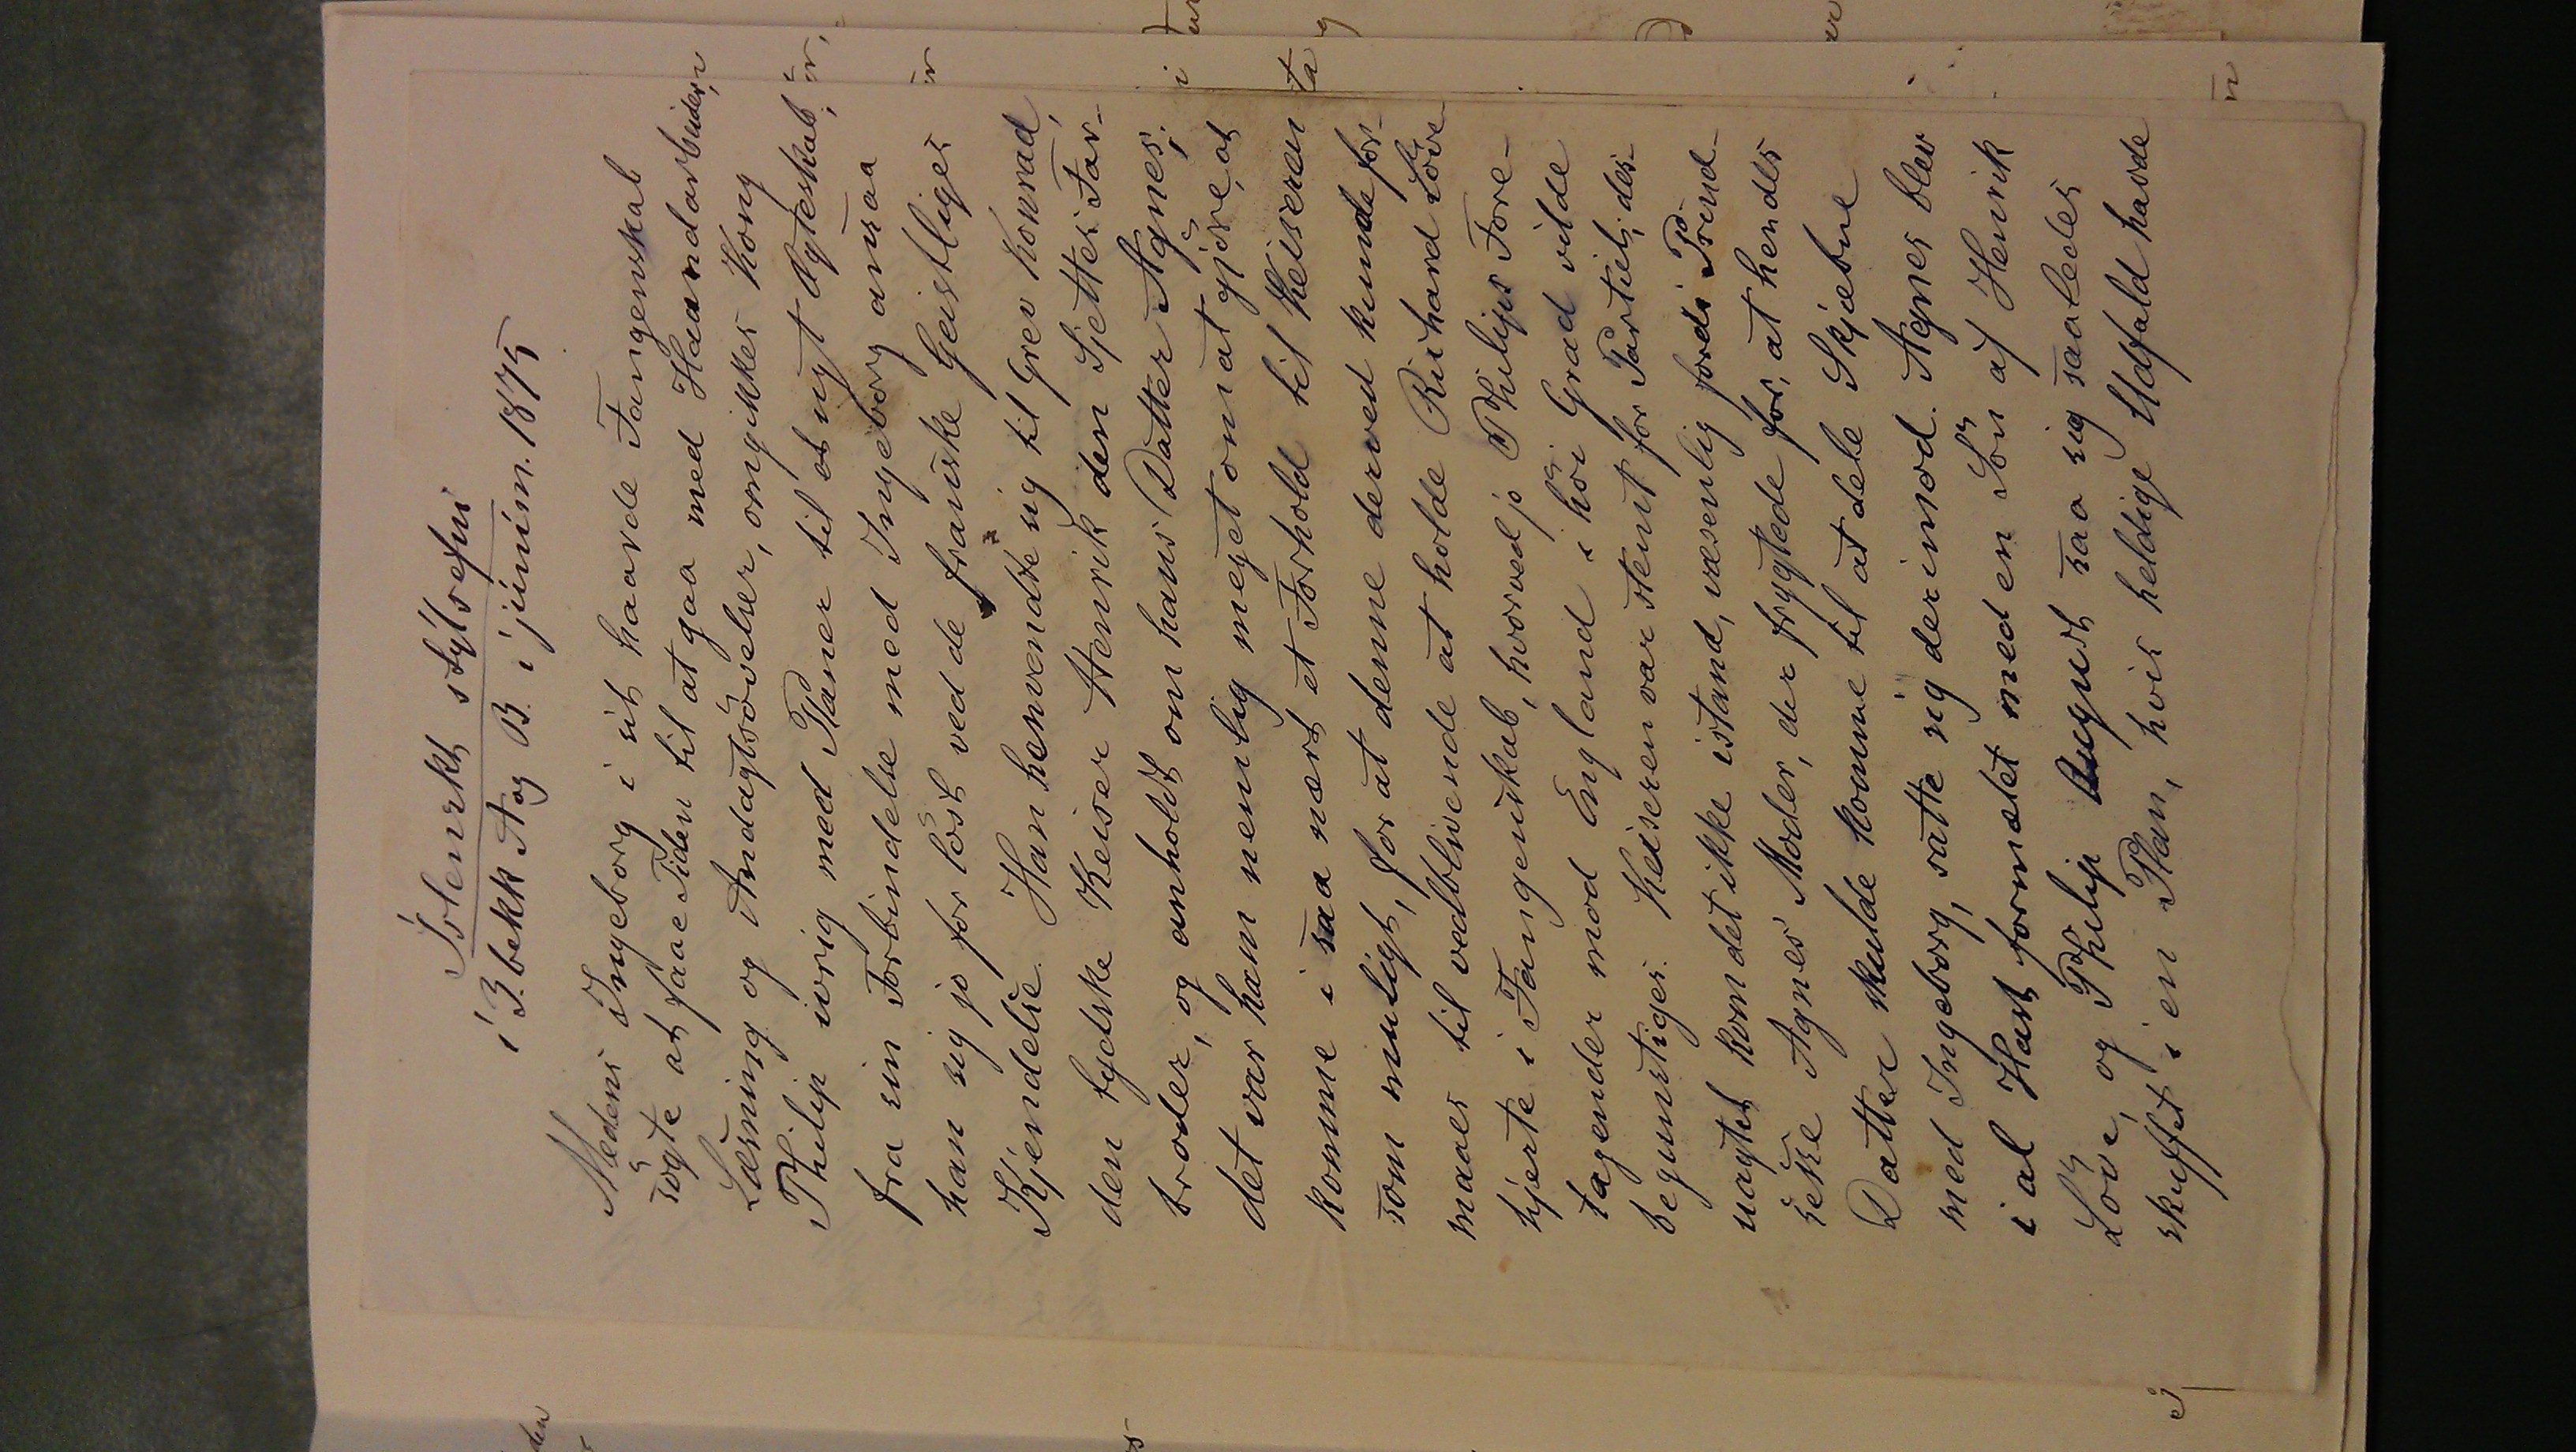 Íslenzkt stýlsefni
í 3. bekk A og B. í júním. 1875
Medens Ingeborg i sit haarde Fangenskab
søgte at faae Tiden til at gaa med Haandarbeider,
Læsning og Andagtsøvelser, omgikkes Kong
Philip ivrig med Planer til et nyt Ægteskab;
fra sin Forbindelse med Ingeborg ansaa
han sig jo for løst ved de franske Geistliges
Kjendelse. Han henvendte sig til Grev Konrad,
den tydske Keiser Henrik den Sjettes Far-
broder, og anholdt om hans Datter Agnes;
det var ham nemlig meget om at gjøre, at
komme i saa nært et Forhold til Keiseren
som muligt, for at denne derved kunde for-
maaes til vedblivende at holde Richard Løve-
hjerte i Fangenskab, hvorved jo Philips Fore-
tagender mod England i høi Grad vilde
begunstiges. Keiseren var stemt for Partiet; des-
uagtet kom det ikke istand, væsenlig fordi Prind-
sesse Agnes' Moder, der frygtede for, at hendes
Datter skulde komme til at dele Skjæbne
med Ingeborg, satte sig derimod. Agnes blev
i al Hast formælet med en Søn af Henrik
Løve, og Philip August saa sig saaledes
skuffet i en Plan, hvis heldige Udfald havde